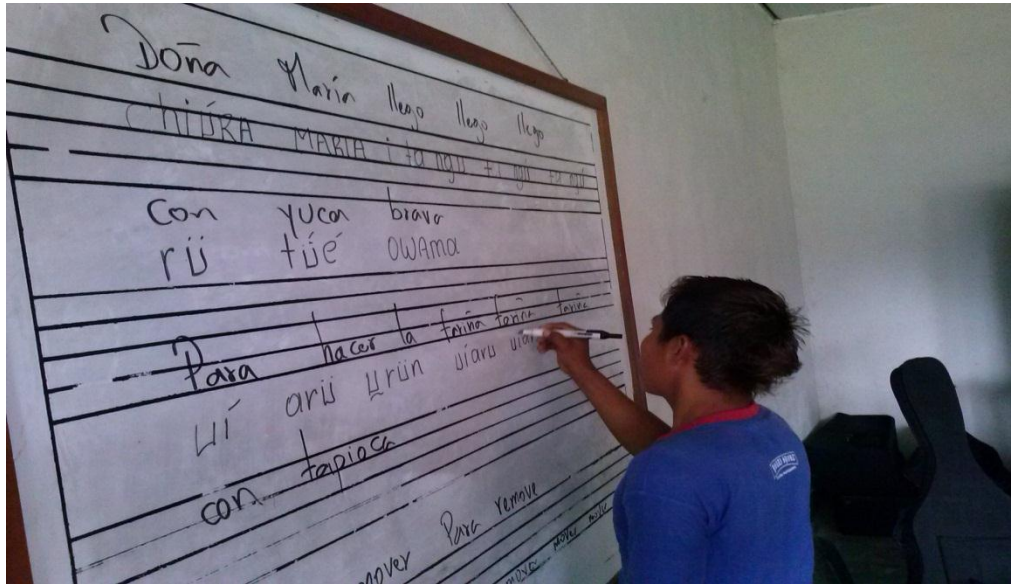 Doña María llego llego llego
CHIÜRA MARIA i ta ngü ti ngü ta ngü
con yuca brava
rü tüé OWAMA
Para hacer la fariña fariña fariña
uí arü ürün uíarü
con tapioca
mover Para remove
mover